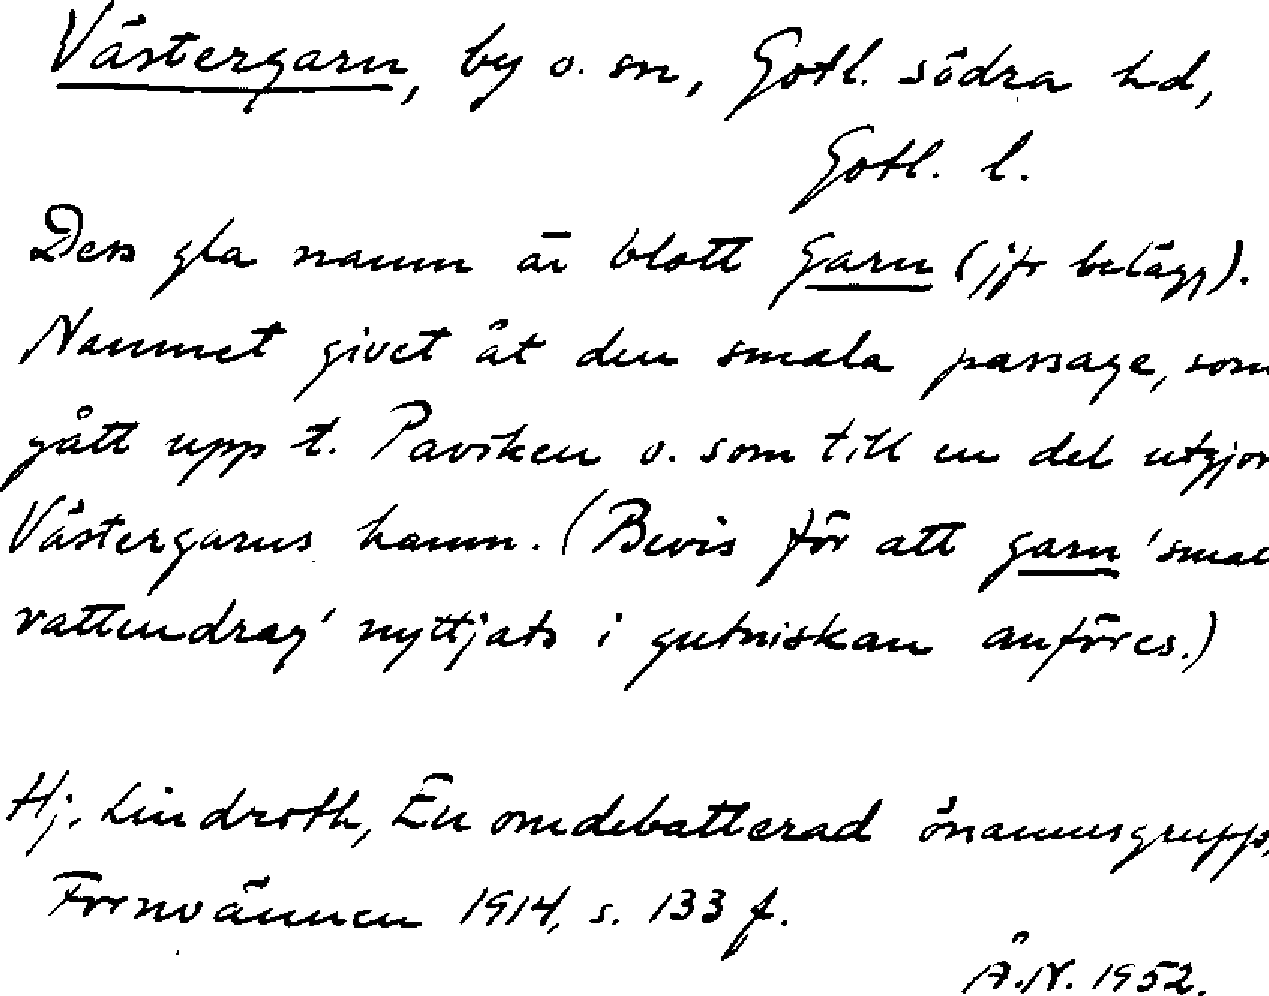 Västergarn, by o. sn, Gotl. södra hd,
Gotl. l.
Dess gla namn är blott Garn (jfr belägg).
Namnet givet åt den smala passage, som
gått upp t. Paviken o. som till en del utgjor
Västergarns hamn. (Bevis för att garn 'smal
vattendrag' nyttjats i gutniskan anföres.)
Hj. Lindroth, En omdebatterad önamnsgrupp,
Fornvännen 1914, s. 133 f.
Å.N. 1952.